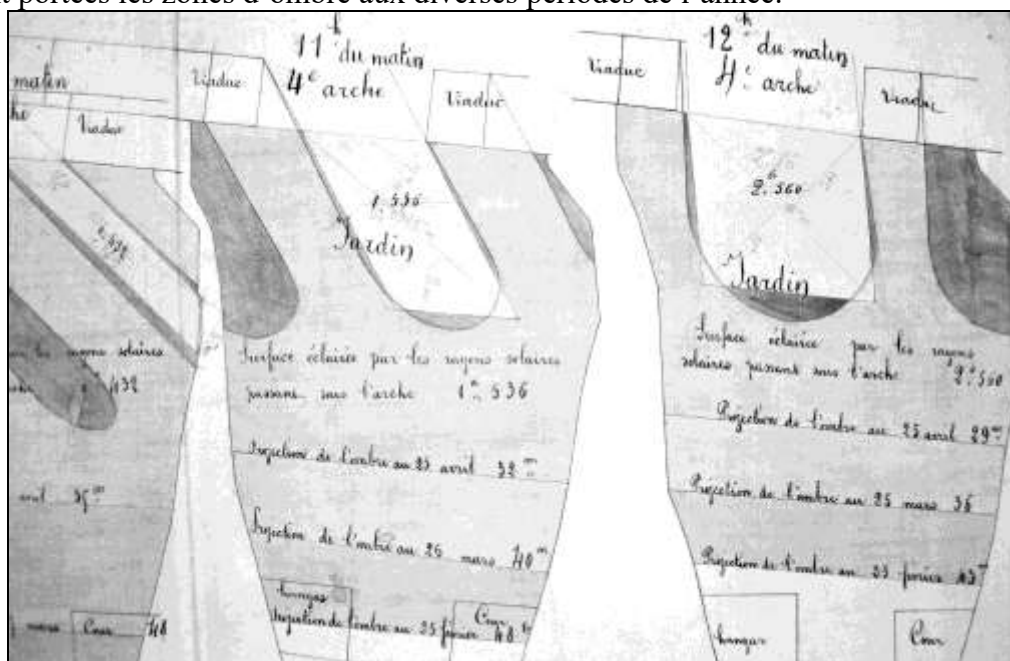 t portées les zones d'ombre aux diverses périodes de l'année.
matin
Viaduc
11h du matin
4e arche
Viaduc
Viaduc
1.536
Jardin
Surface éclairée par les rayons solaires
passant sous l'arche 1m.536
Projection de l'ombre au 25 avril 32m
Projection de l'ombre au 25 mars 40m
hangar
Projection de l'ombre au 25 février 48m
Cour
rayons solaires
432
avril 35m
mars
Cour
48
Viaduc
12h du matin
4e arche
Viaduc
2.560
Jardin
Surface éclairée par les rayons
solaires passant sous l'arche 2.560
Projection de l'ombre au 25 avril 29m
Projection de l'ombre au 25 mars 36
Projection de l'ombre au 25 février 43m
hangar
Cour